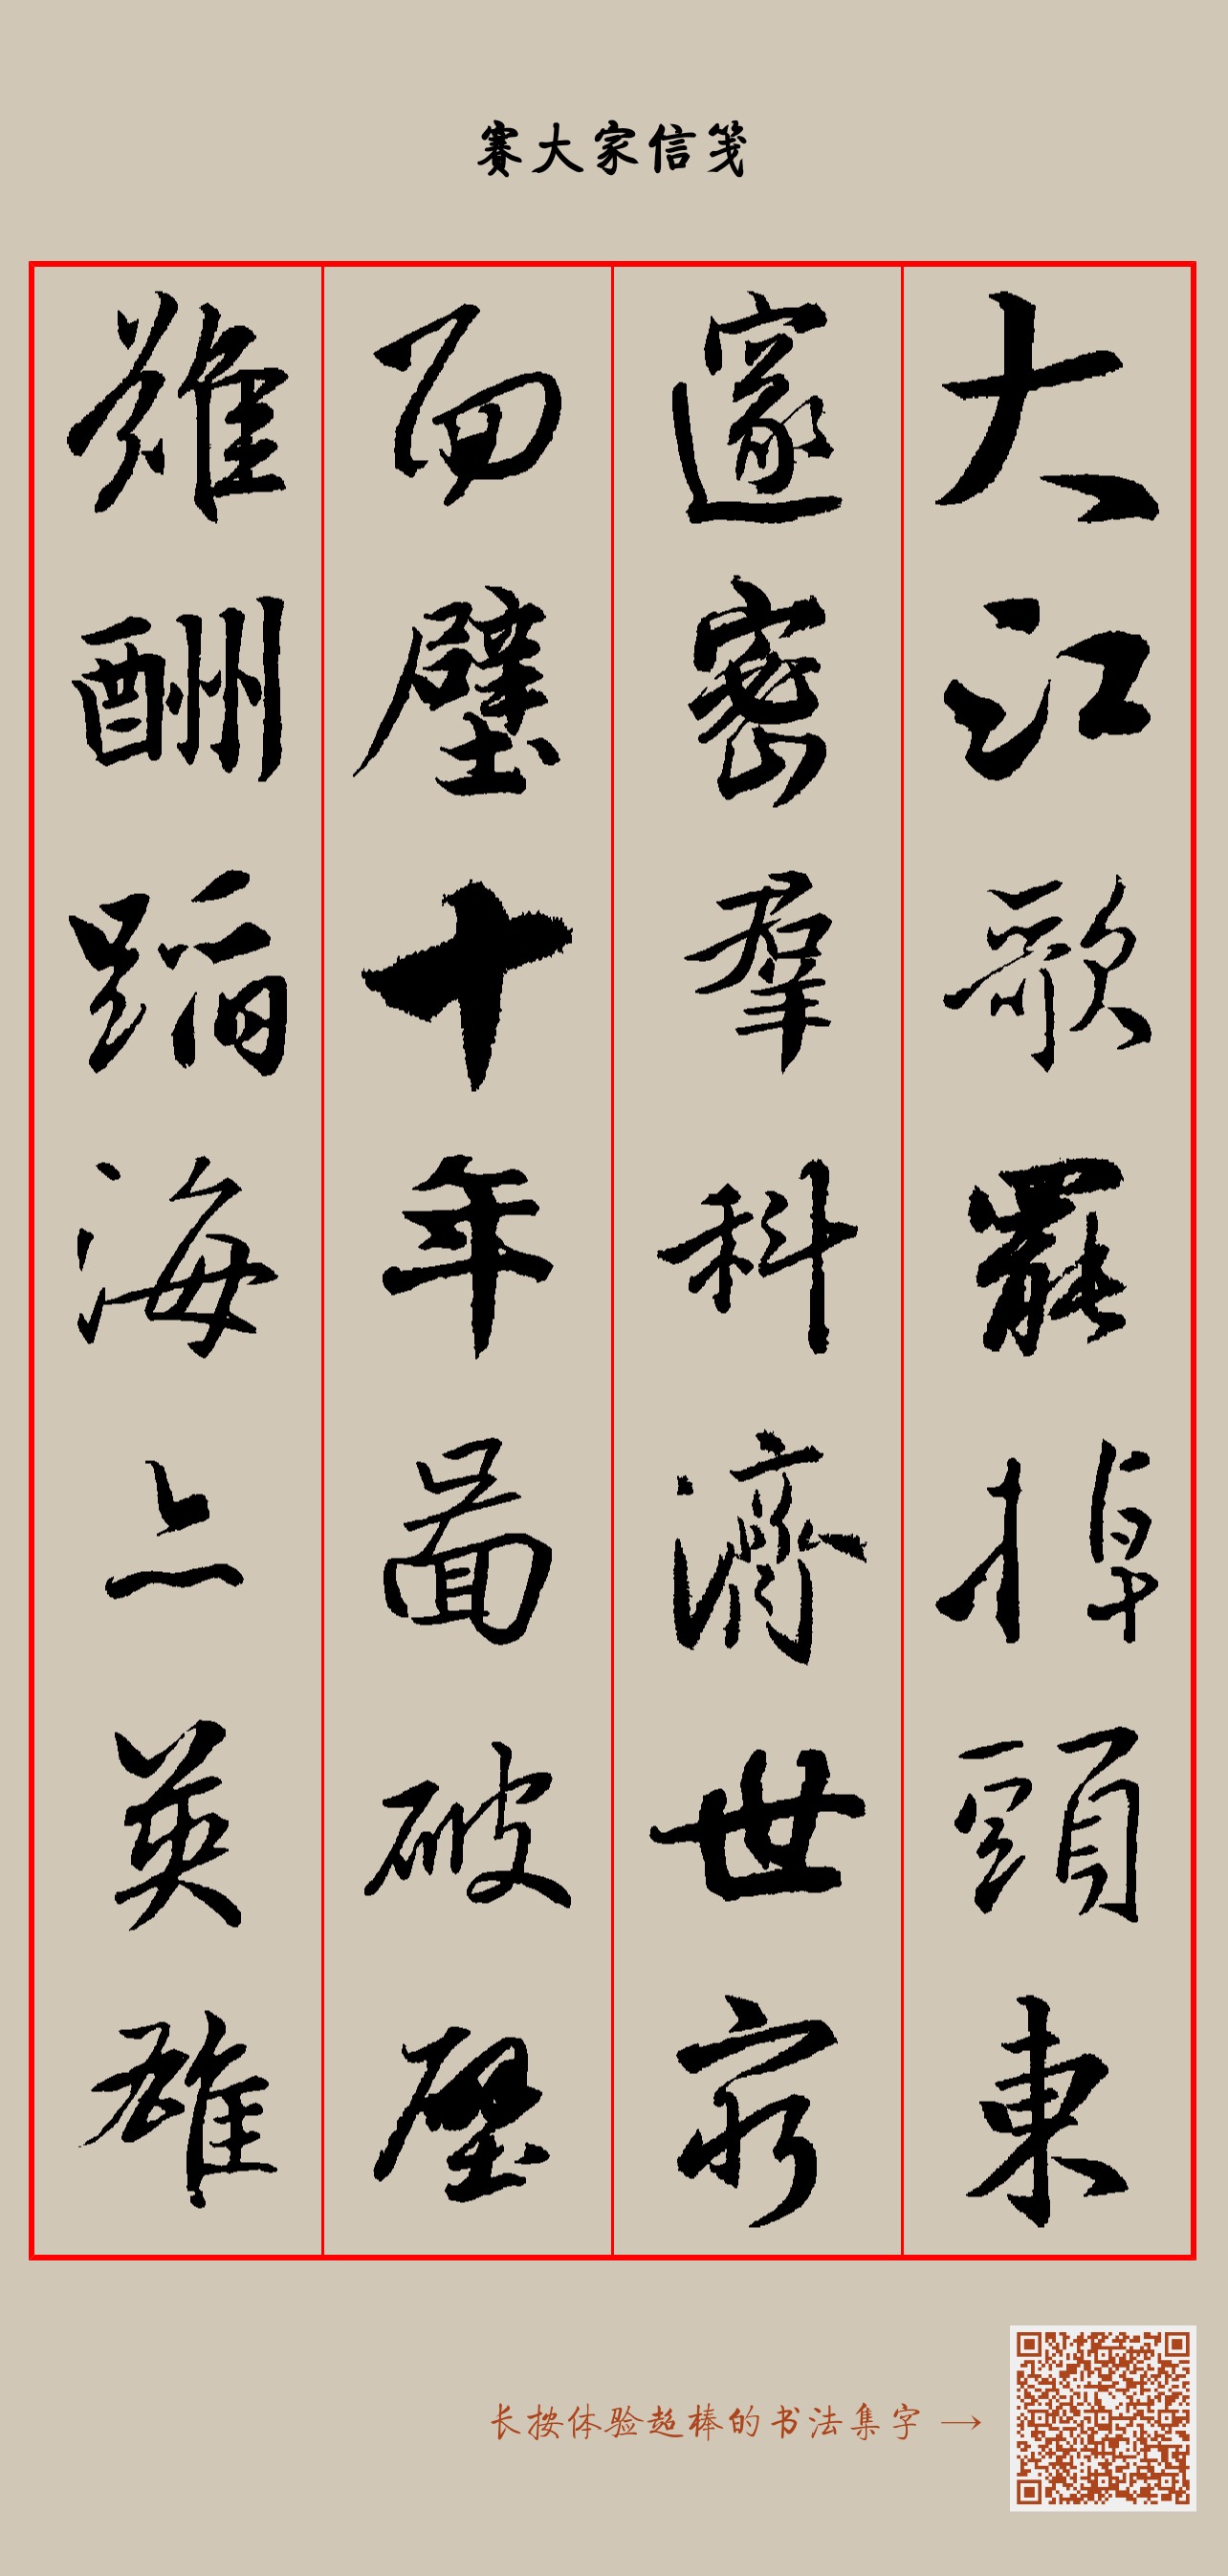 賽大家信笺
大江歌罷掉頭東
邃密羣科濟世穷
面壁十年圖破壁
難酬蹈海亦英雄
长按体验超棒的书法集字 →